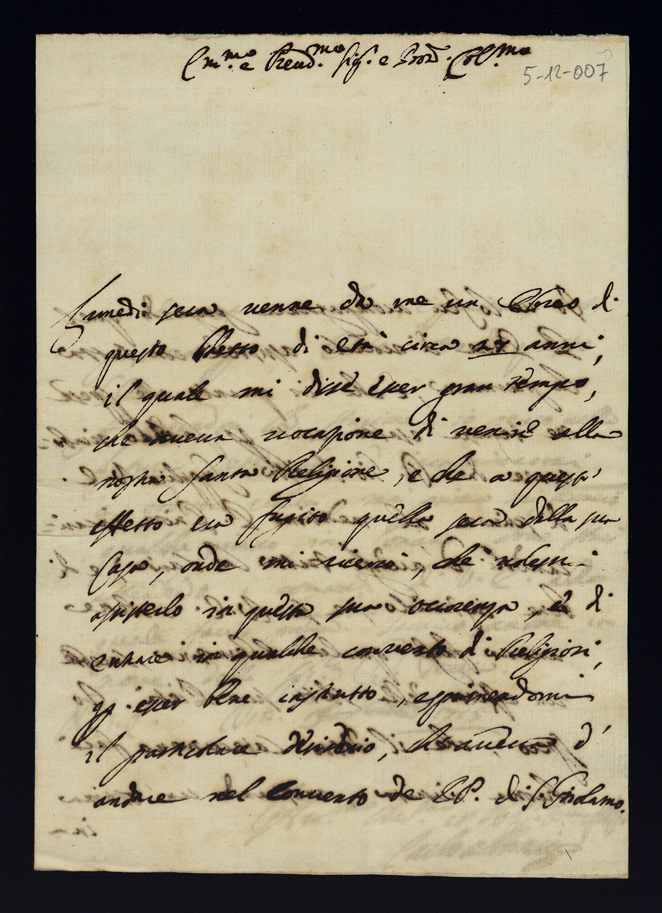 Em.mo e Reud.mo Sig.r e Pron. Col.mo
5-12-007
Lunedi sera venne da me un Ebreo di
questo Ghetto di età circa 27 anni,
il quale mi disse esser gran tempo,
che aueua uocazione di venire alla
nostra Santa Religione, e che a quest'
effetto era fugito quella sera dalla sua
Casa, onde mi, che uolessi
assisterlo in questa sua ocorenza, e di
entrare in qualche conuento di Religiosi,
p. esser bene instrutto, esprimendomi
il particolare desiderio, che aueua d'
andare nel Conuento de P.P. di S. Girolamo.
in-